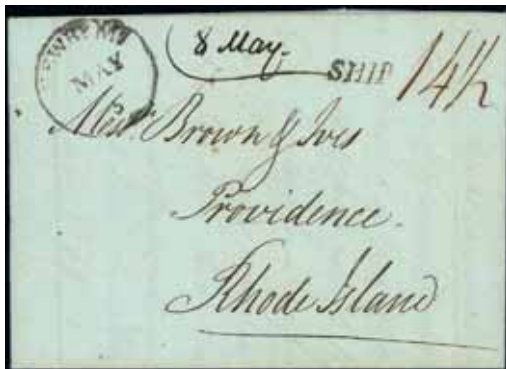 8 May.
MAY
SHIP
14½
Messrs. Brown & Ives
Providence.
Rhode Island